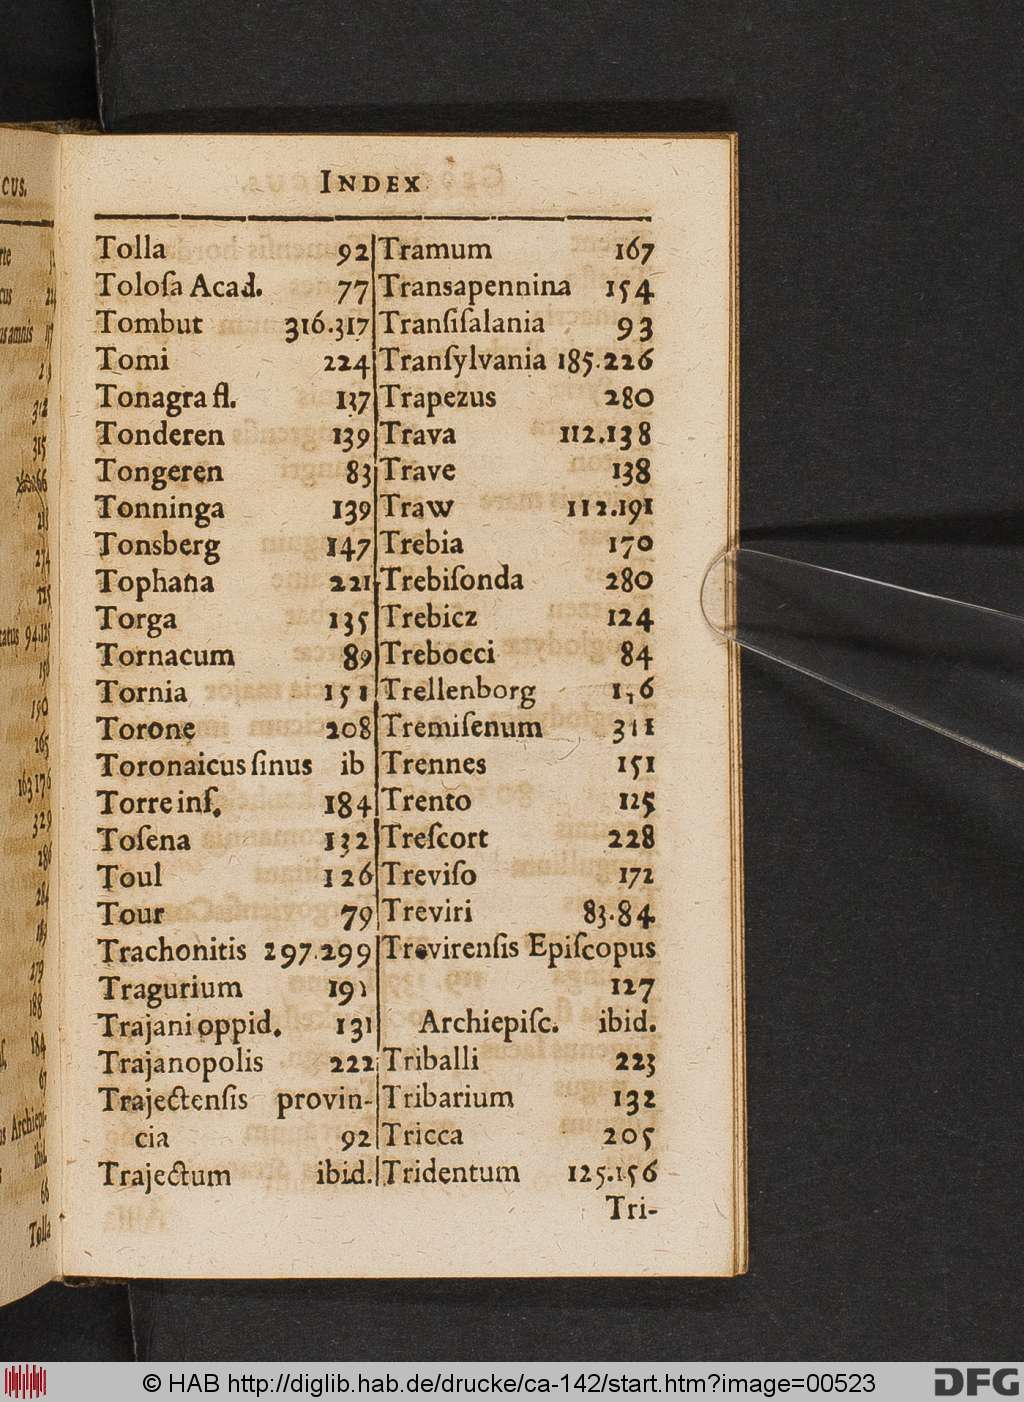 INDEX
Tolla 92
Toloſa Acad. 77
Tombut 316.317
Tomi 224
Tonagra fl. 137
Tonderen 139
Tongeren 83
Tonninga 139
Tonsberg 147
Tophana 221
Torga 135
Tornacum 89
Tornia 151
Torone 208
Toronaicus ſinus ib
Torre inſ. 184
Toſena 132
Toul 126
Tour 79
Trachonitis 297.299
Tragurium 191
Trajani oppid. 131
Trajanopolis 222
Trajectenſis provin-
cia 92
Trajectum ibid.
Tramum 167
Transapennina 154
Tranſiſalania 93
Tranſylvania 185.226
Trapezus 280
Trava 112.138
Trave 138
Traw 112.191
Trebia 170
Trebiſonda 280
Trebicz 124
Trebocci 84
Trellenborg
Tremiſenum 311
Trennes 151
Trento 125
Treſcort 228
Treviſo 172
Treviri 83.84
Trevirenſis Epiſcopus
127
Archiepiſc. ibid.
Triballi 223
Tribarium 132
Tricca 205
Tridentum 125.156
Tri-
© HAB http://diglib.hab.de/drucke/ca-142/start.htm?image=00523
DFG